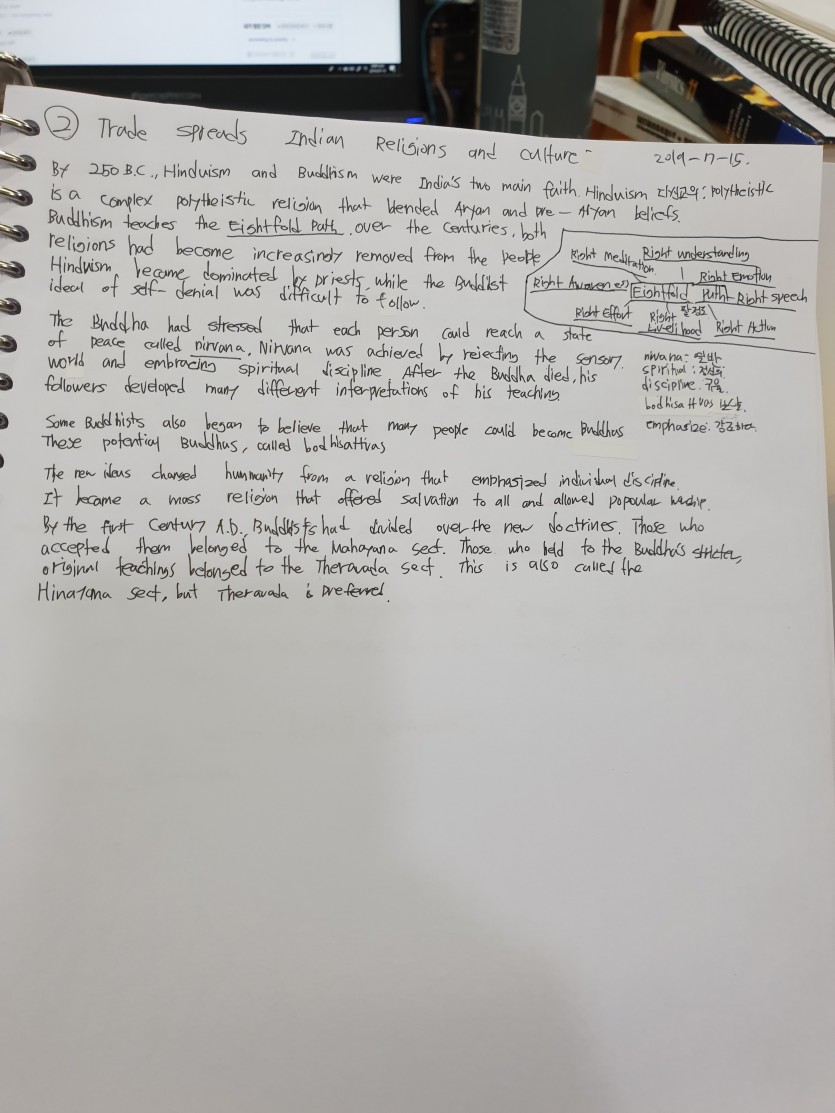 ② Trade spreads Indian Religions and culture - 2019-7-15.
By 250 B.C., Hinduism and Buddhism were India's two main faith. Hinduism 다신교의: polytheistic
is a complex polytheistic religion that blended Aryan and pre-Aryan beliefs.
Buddhism teaches the Eightfold Path. over the centuries, both
religions had become increasingly removed from the people
Hinduism became dominated by priests, while the Buddhist
ideal of self-denial was difficult to follow.
Right meditation
Right understanding
Right Emotion
Right Awareness
Eightfold Path
Right speech
팔정도
Right Effort
Right Livelihood
Right Action
The Buddha had stressed that each person could reach a state
of peace called nirvana. Nirvana was achieved by rejecting the sensory
world and embracing spiritual discipline After the Buddha died, his
followers developed many different interpretations of his teaching
nirvana: 열반
spiritual: 정신의
discipline: 규율
bodhisattvas 보살.
emphasize: 강조하다
Some Buddhists also began to believe that many people could become Buddhas
These potential Buddhas, called bodhisattvas
The new ideas changed humanity from a religion that emphasized individual discipline.
It became a mass religion that offered salvation to all and allowed popoular worship.
By the first Century A.D., Buddhists had divided over the new doctrines. Those who
accepted them belonged to the Mahayana sect. Those who held to the Buddha's stricter,
original teachings belonged to the Theravada sect. This is also called the
Hinayana sect, but Theravada is preferred.
Physics 11